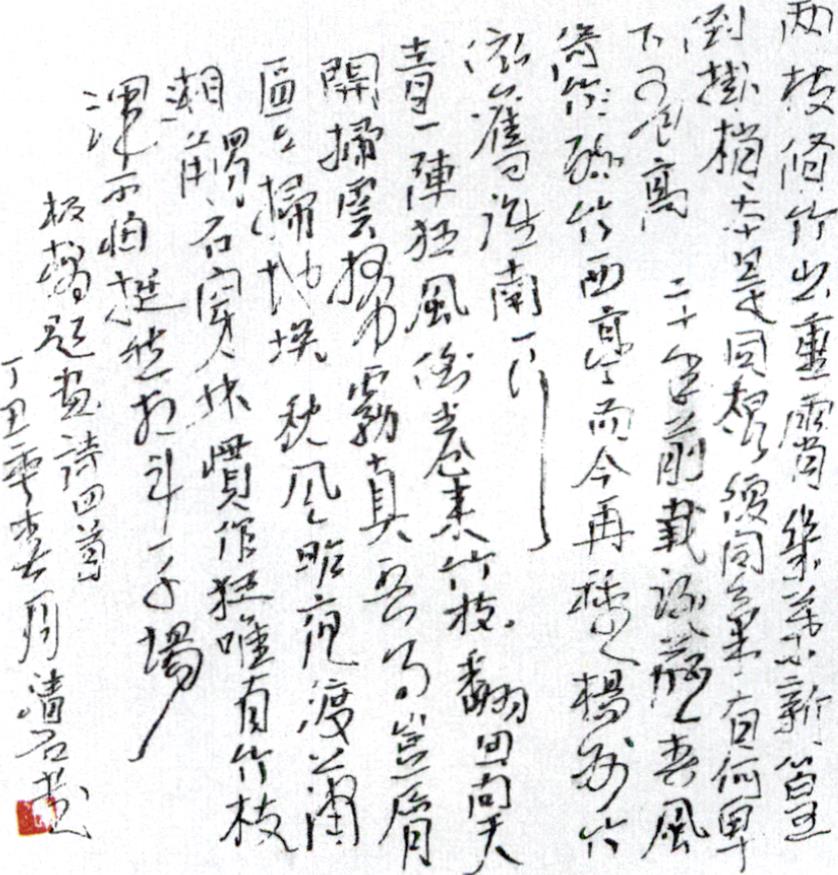 两枝修竹出重霄幾葉新篁
倒掛梢本是同根復同氣有何卑
下有何高 二十年前載酒瓶春風
倚醉竹西亭而今再種楊州竹
依舊淮南一片
青一陣狂風倒卷來竹枝翻回向天
開掃雲掃霧真吾事豈屑
區々掃地埃 秋風昨夜渡瀟
湘觸石穿林慣作狂唯有竹枝
渾不怕挺然相鬥一千場
板橋題畫詩四首
丁丑季春月清石書